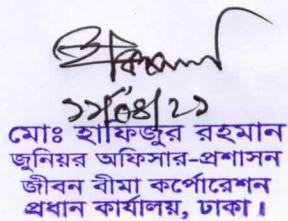 ১১/০৪/২১
মোঃ হাফিজুর রহমান
জুনিয়র অফিসার-প্রশাসন
জীবন বীমা কর্পোরেশন
প্রধান কার্যালয়, ঢাকা।